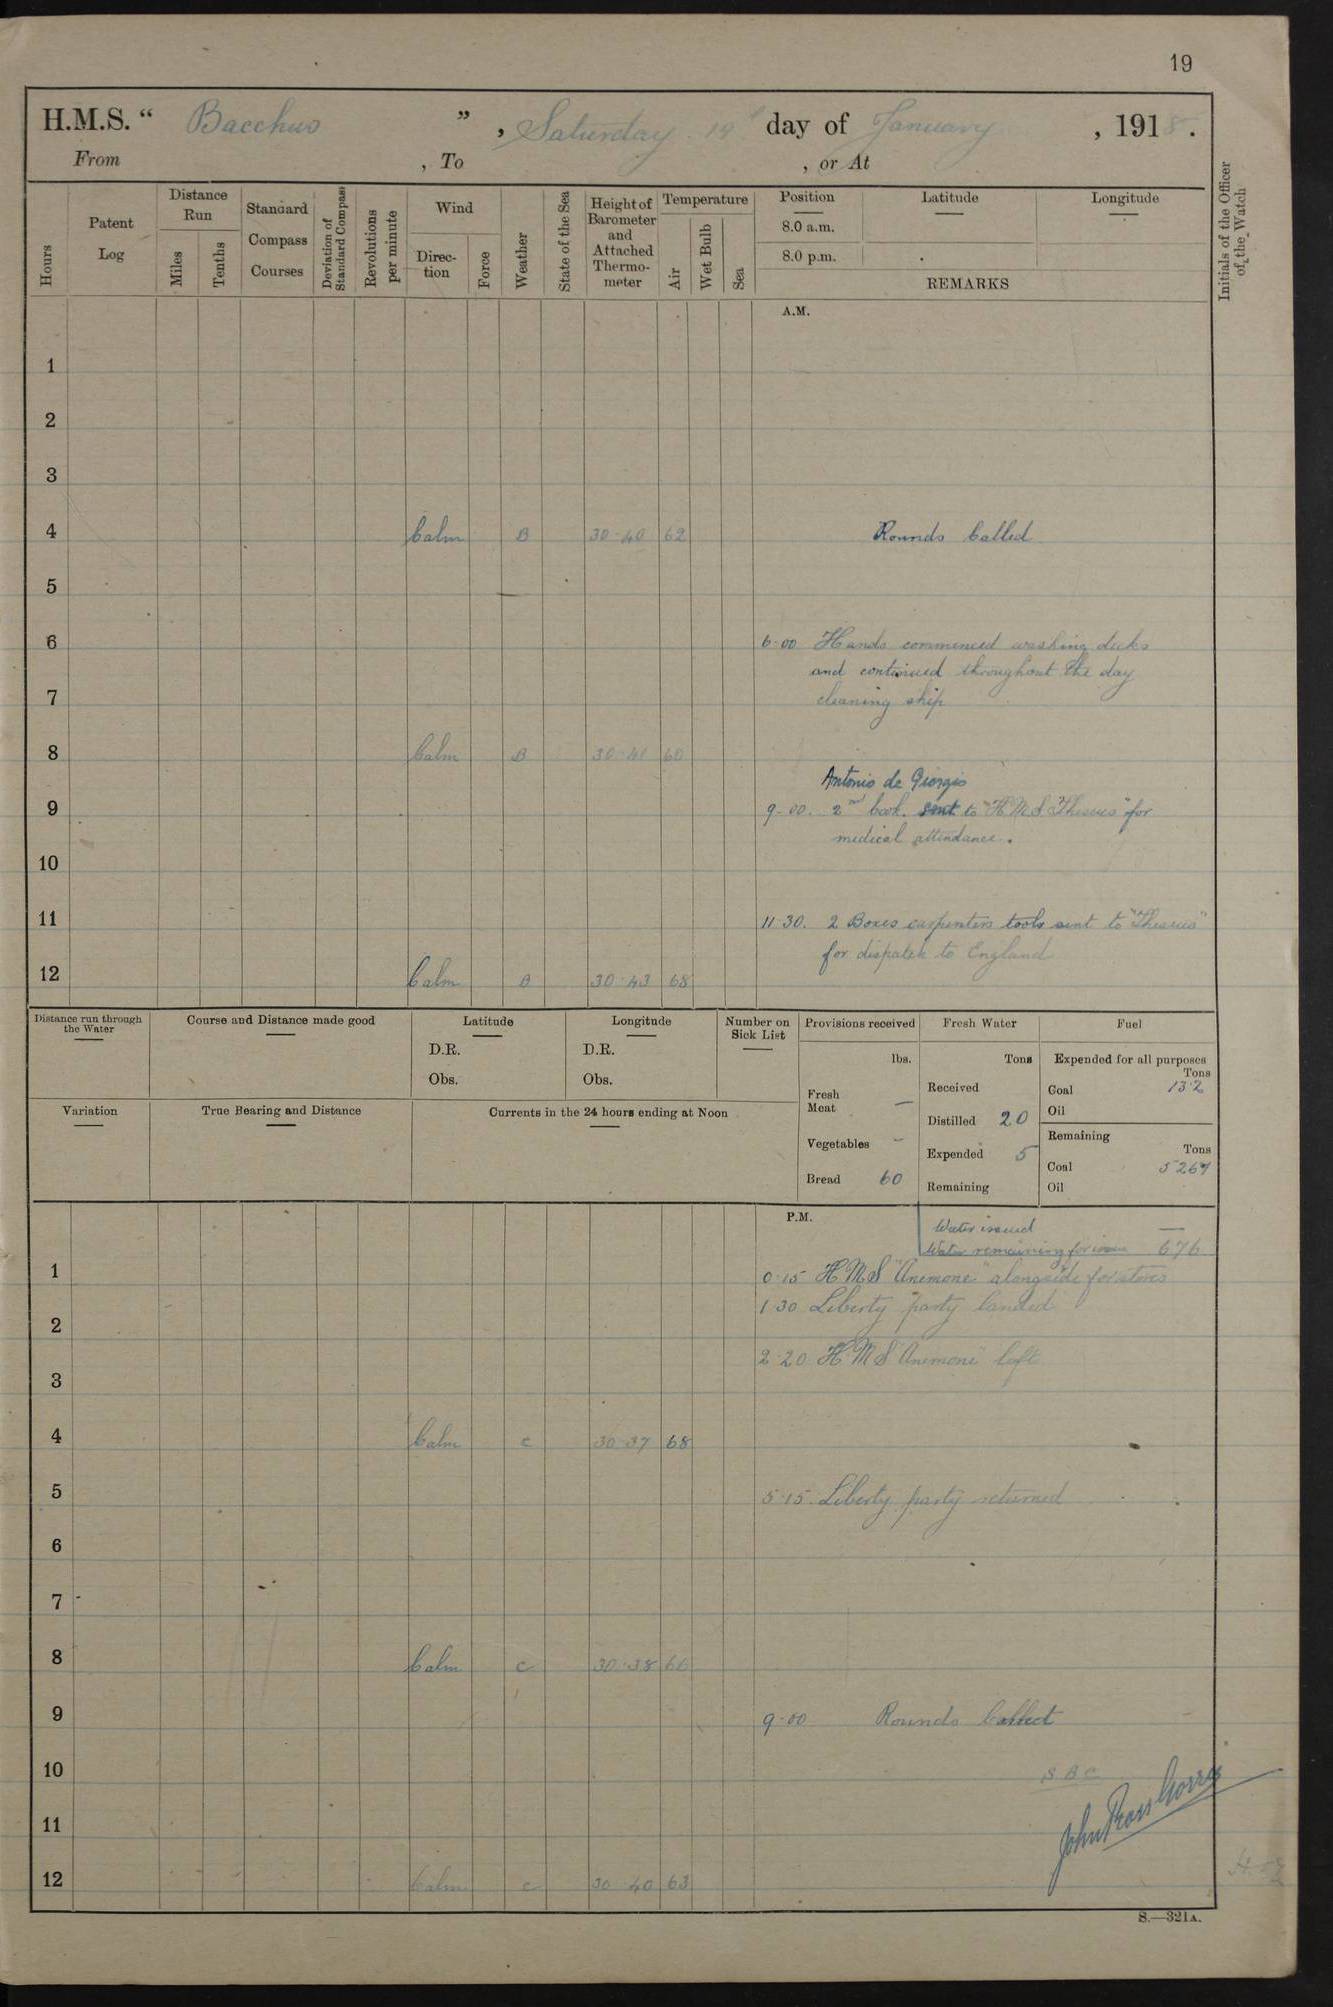 19
H.M.S. “ Bacchus ” , Saturday 19th day of January , 1918.
From , To , or At
Hours
Patent Log
Distance Run
Miles
Tenths
Standard Compass Courses
Deviation of Standard Compass
Revolutions per minute
Wind
Direction
Force
Weather
State of the Sea
Height of Barometer and Attached Thermometer
Temperature
Air
Wet Bulb
Sea
Position Latitude Longitude
8.0 a.m.
8.0 p.m.
REMARKS
Initials of the Officer of the Watch
A.M.
1
2
3
4 Calm B 30·40 62 Rounds Called
5
6 6·00 Hands commenced washing decks
and continued throughout the day
7 cleaning ship
8 Calm B 30·40 60
Antonio de Giorgio
9 9-00. 2nd Cook. sent to "H M S Theseus" for
medical attendance.
10
11 11·30. 2 Boxes carpenters tools sent to "Theseus"
for dispatch to England
12 Calm B 30·43 68
Distance run through the Water
Course and Distance made good
Latitude
D.R.
Obs.
Longitude
D.R.
Obs.
Number on Sick List
Provisions received
lbs.
Fresh Meat —
Vegetables -
Bread 60
Fresh Water
Tons
Received
Distilled 20
Expended 5
Remaining
Fuel
Expended for all purposes
Tons
Coal 13·2
Oil
Remaining
Tons
Coal 5267
Oil
Variation
True Bearing and Distance
Currents in the 24 hours ending at Noon
P.M.
Water issued —
Water remaining for issue 676
1 0·15 H M S "Anemone" alongside for stores
1·30 Liberty party landed
2
2·20 H M S "Anemone" left
3
4 Calm C 30·37 68
5 5·15. Liberty party returned
6
7
8 Calm C 30·38 66
9 9·00 Rounds Called
10 S B C
11
12 Calm C 30·40 63
S.—321A.